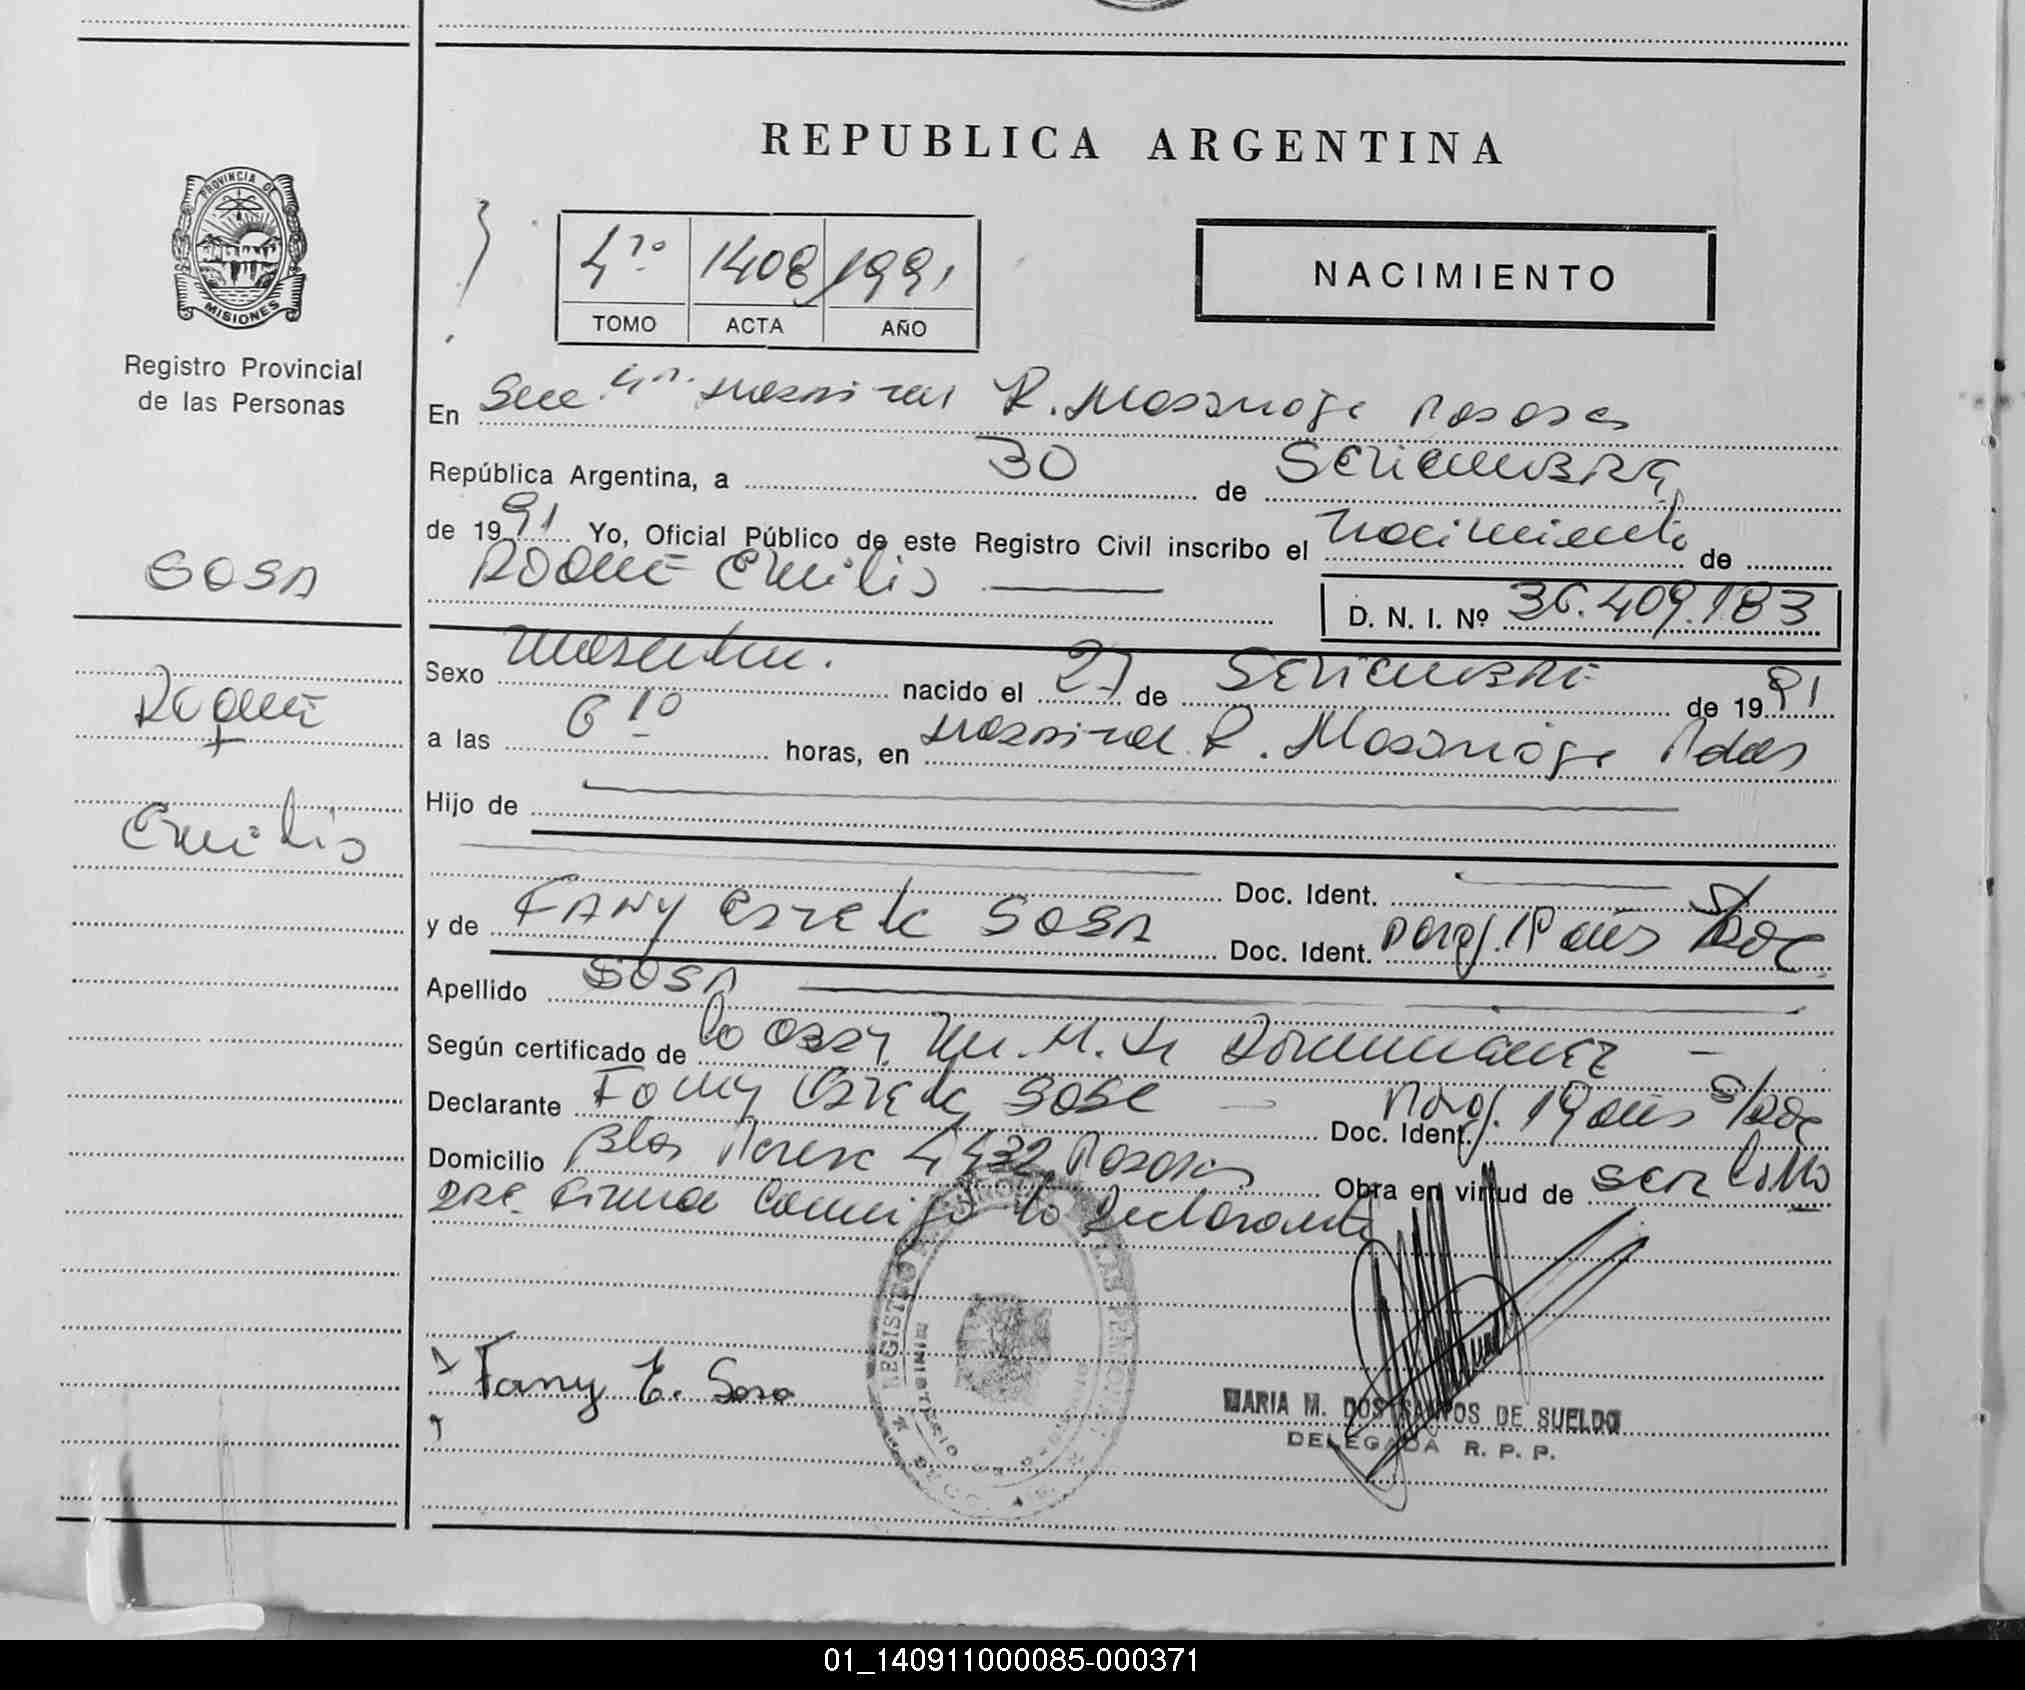 REPUBLICA ARGENTINA
PROVINCIA DE
MISIONES
Registro Provincial
de las Personas
SOSA
Roque
Emilio
4to 1408 1991
TOMO ACTA AÑO
NACIMIENTO
En Secc 4ta Hospital R. Madariaga Posadas
República Argentina, a 30 de SETIEMBRE
de 1991 Yo, Oficial Público de este Registro Civil inscribo el nacimiento de
ROQUE Emilio
D. N. I. Nº 36.409.183
Sexo masculin. nacido el 27 de SETIEMBRE de 1991
a las 6 10 horas, en Hospital R. Madariaga Pdas
Hijo de
Doc. Ident.
y de FANY Estela SOSA Doc. Ident. Parag. 19 años S/Doc
Apellido SOSA
Según certificado de la Obst. M. de DOMINGUEZ
Declarante Fany Estela SOSA Doc. Ident. Parag. 19 años S/Doc
Domicilio Blas Parera 4432 Posadas Obra en virtud de ser la M
Firma conmigo la declarante
Fany E. Sosa
REGISTRO
MINISTERIO
MARIA M. DOS SANTOS DE SUELDO
DELEGADA R. P. P.
01_140911000085-000371